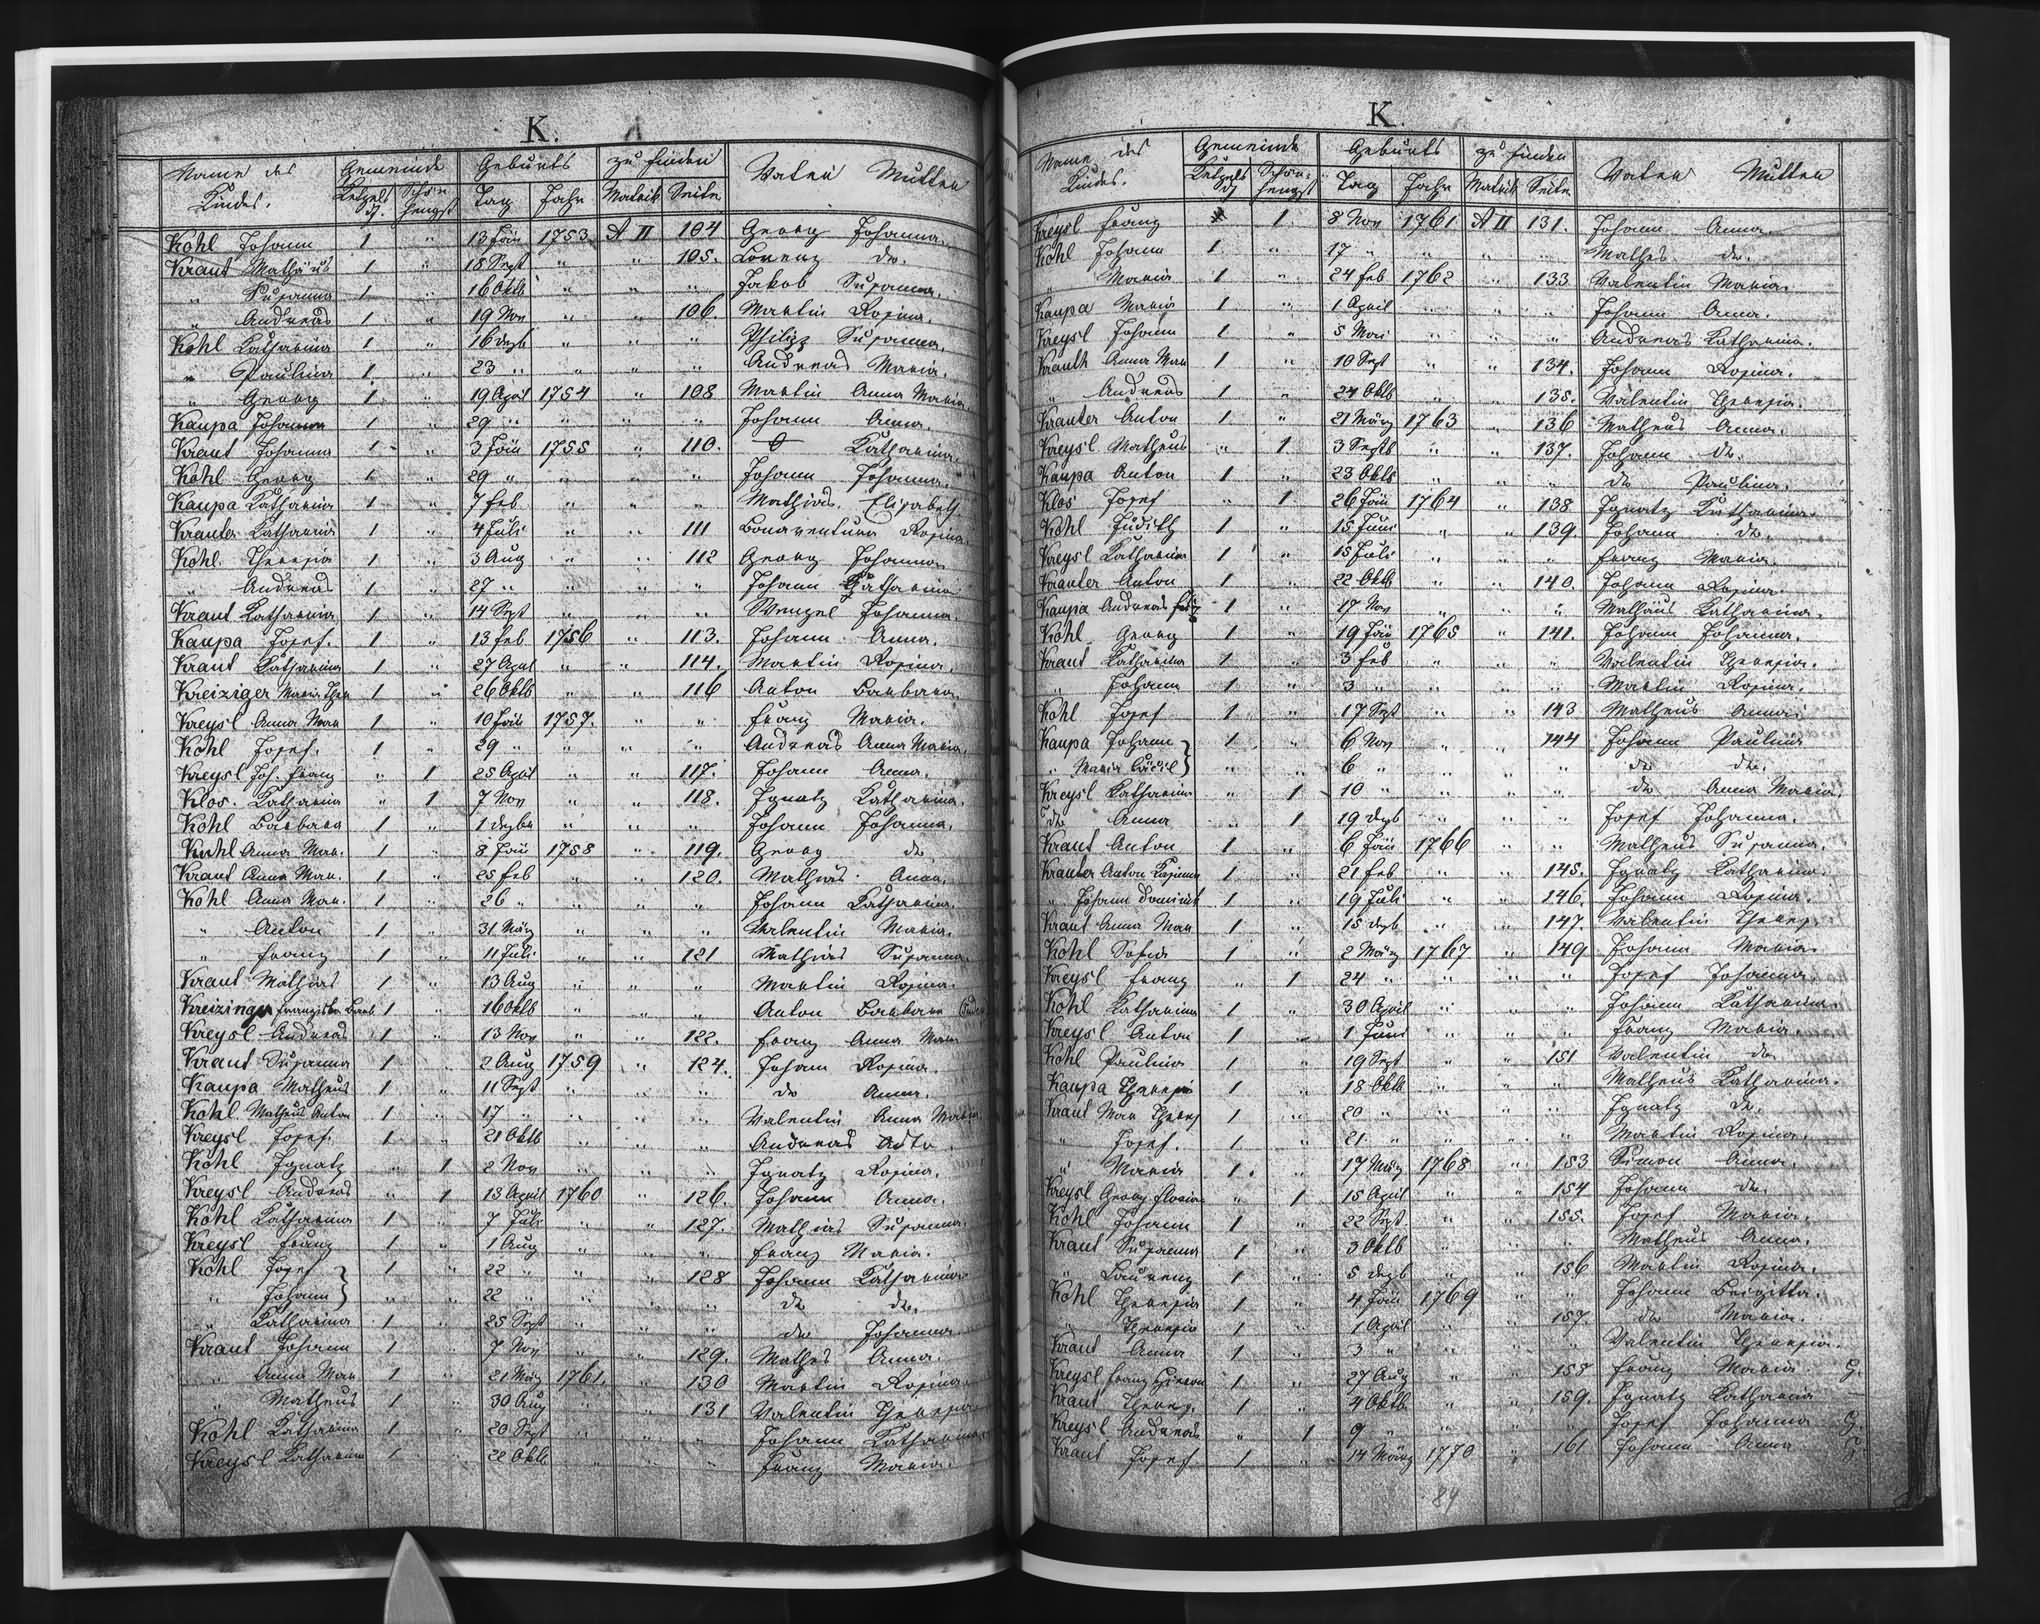 K.
Name des Kindes. Gemeinde Geburts zu finden Vater Mutter
Ketzelsd. Schönhengst Tag Jahr Matrik Seite
Kohl Johann 1 " 13 Jäń 1753 A II 104 Georg Johanna.
Kraut Mathäus 1 " 18 Sept " " 105. Lorenz do.
" Susanna 1 " 16 Oktb " " " Jakob Susanna.
" Andreas 1 " 19 Nov " " 106. Martin Rosina.
Kohl Katharina 1 " 16 Dezb " " " Philipp Susanna.
" Paulina 1 " 23 " " " " Andreas Maria.
" Georg 1 " 19 April 1754 " 108 Martin Anna Maria.
Kaupa Johann 1 " 29 " " " " Johann Anna.
Kraut Johanna 1 " 3 Jän 1755 " 110. Katharina.
Kohl Georg 1 " 29 " " " " Johann Johanna.
Kaupa Katharina 1 " 7 Feb " " " Mathias Elisabeth.
Krauter Katharina 1 " 4 Juli " " 111 Bonaventura Rosina.
Kohl Theresia 1 " 3 Aug " " 112 Georg Johanna.
" Andreas 1 " 27 " " " " Johann Katharina
Kraut Katharina 1 " 14 Sept " " " Wenzel Johanna.
Kaupa Josef. 1 " 13 Feb 1756 " 113. Johann Anna.
Kraut Katharina 1 " 27 April " " 114. Martin Rosina.
Kreiziger Maria Ther 1 " 26 Oktb " " 116 Anton Barbara.
Kreysl Anna Mar 1 " 10 Jän 1757. " " Franz Maria.
Kohl Josef. 1 " 29 " " " " Andreas Anna Maria.
Kreysl Joh. Franz " 1 25 April " " 117. Johann Anna.
Klos. Katharina " 1 7 Nov " " 118. Ignatz Katharina.
Kohl Barbara 1 " 1 Dezbr " " " Johann Johanna.
Kohl Anna Mar. 1 " 8 Jän 1758 " 119. Georg do
Kraut Anna Mar. 1 " 25 Feb " " 120. Mathias Anna.
Kohl Anna Mar. 1 " 26 " " " " Johann Katharina.
" Anton 1 " 31 März " " " Valentin Maria.
" Franz 1 " 11 Juli " " 121 Mathias Susanna.
Kraut Mathias 1 " 13 Aug " " " Martin Rosina.
Kreizinger Franziska Barb. 1 " 16 Oktb " " " Anton Barbara
Kreysl Andreas 1 " 13 Nov " " 122. Franz Anna Mar
Kraut Susanna 1 " 2 Aug 1759 " 124. Johann Rosina.
Kaupa Matheus 1 " 11 Sept " " " do Anna.
Kohl Matheus Anton 1 " 17 " " " " Valentin Anna Maria
Kreysl Josef. 1 " 21 Oktb " " " Andreas
Kohl Ignatz " 1 2 Nov " " " Ignatz Rosina.
Kreysl Andreas " 1 13 April 1760 " 126. Johann Anna.
Kohl Katharina 1 " 7 Juli " " 127. Mathias Susanna.
Kreysl Franz 1 " 1 Aug " " " Franz Maria.
Kohl Josef } 1 " 22 " " " 128 Johann Katharina
" Johann } " " 22 " " " " do do.
" Katharina 1 " 25 Sept " " " do Johanna.
Kraut Johann 1 " 7 Nov " " 129. Mathes Anna.
" Anna Mar 1 " 21 März 1761. " 130 Martin Rosina
" Matheus 1 " 30 Aug " " 131 Valentin Theresia
Kohl Katharina 1 " 20 Sept " " " Johann Katharina
Kreysl Katharina 1 " 22 Oktb " " " Franz Maria.
K.
Name des Kindes. Gemeinde Geburts zu finden Vater Mutter
Ketzelsd. Schönhengst Tag Jahr Matrik Seite
Kreysl Franz 1 8 Nov 1761 A II 131. Johann Anna.
Kohl Johann 1 " 17 " " " " Mathes do.
" Maria 1 " 24 Feb 1762 " 133. Valentin Maria.
Kaupa Maria 1 " 1 April " " " Johann Anna.
Kreysl Johann 1 " 5 Mai " " " Andreas Katharina.
Krauth Anna Mar 1 " 10 Sept " " 134. Johann Rosina.
" Andreas 1 " 24 Oktb " " 135. Valentin Theresia.
Krauter Anton 1 " 21 März 1763 " 136 Matheus Anna.
Kreysl Matheus " 1 3 Septb " " 137. Johann do.
Kaupa Anton 1 " 23 Oktb " " " do Paulina.
Klos Josef " 1 26 Jän 1764 " 138 Ignatz Katharina.
Kohl Judith 1 " 15 Juni " " 139. Johann do.
Kreysl Katharina 1 " 15 Juli " " " Franz Maria.
Krauter Anton 1 " 22 Oktb " " 140. Johann Rosina.
Kaupa Andreas 1 " 17 Nov " " " Mathäus Katharina.
Kohl Georg 1 " 19 Jän 1765 " 141. Johann Johanna.
Kraut Katharina 1 " 3 Feb " " " Valentin Theresia.
" Johann 1 " 3 " " " " Martin Rosina.
Kohl Josef 1 " 17 Sept " " 143 Matheus Anna.
Kaupa Johann } 1 " 6 Nov " " 144 Johann Paulina
" Maria Cäcil } " " 6 " " " " do do.
Kreysl Katharina " 1 10 " " " " do Anna Maria.
do Anna " 1 19 Dezb " " " Josef Johanna.
Kraut Anton 1 " 6 Jän 1766 " " Matheus Susanna.
Krauter Anton 1 " 21 Feb " " 145. Ignatz Katharina.
" Johann Dominik 1 " 19 Juli " " 146. Johann Rosina.
Kraut Anna Mar 1 " 15 Dezb " " 147. Valentin Theres.
Kohl Sofia 1 " 2 März 1767 " 149 Johann Maria.
Kreysl Franz " 1 24 " " " " Josef Johanna.
Kohl Katharina 1 " 30 April " " " Johann Katharina.
Kreysl Anton 1 " 1 Juni " " " Franz Maria.
Kohl Paulina 1 " 19 Sept " " 151 Valentin do
Kaupa Theresia 1 " 18 Oktb " " " Matheus Katharina.
Kraut Mar Theres 1 " 20 " " " " Ignatz do.
" Josef. 1 " 21 " " " " Martin Rosina.
" Maria 1 " 17 März 1768 " 153 Simon Anna.
Kreysl Georg Florian " 1 15 April " " 154 Johann do.
Kohl Johann 1 " 22 Sept. " " 155. Josef Maria.
Kraut Susanna 1 " 3 Oktb " " " Matheus Anna.
" Laurenz 1 " 5 Dezb " " 156 Martin Rosina.
Kohl Theresia 1 " 4 Jän 1769 " " Johann Brigitta.
" Theresia 1 " 1 April " " 157. do Maria.
Kraut Anna 1 " 3 " " " " Valentin Theresia.
Kreysl Franz 1 " 27 Aug " " 158 Franz Maria.
Kraut Theres. 1 " 4 Oktb " " 159. Ignatz Katharina
Kreysl Andreas " 1 9 " " " " Josef Johanna
Kraut Josef 1 " 14 März 1770 " 161 Johann Anna
84